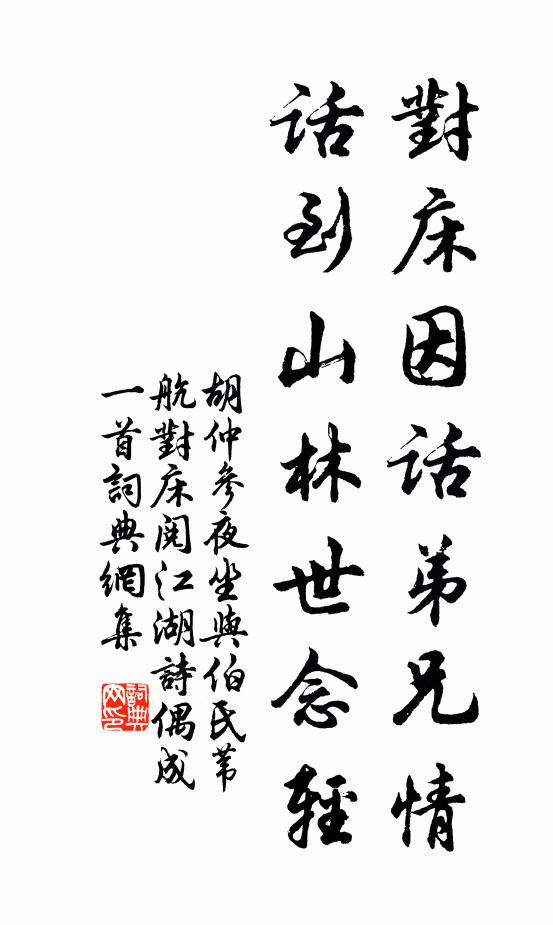 對床因話弟兄情
話到山林世念輕
胡仲參夜坐與伯氏葦
航對床閱江湖詩偶成
一首詞典網集
詞典
网印